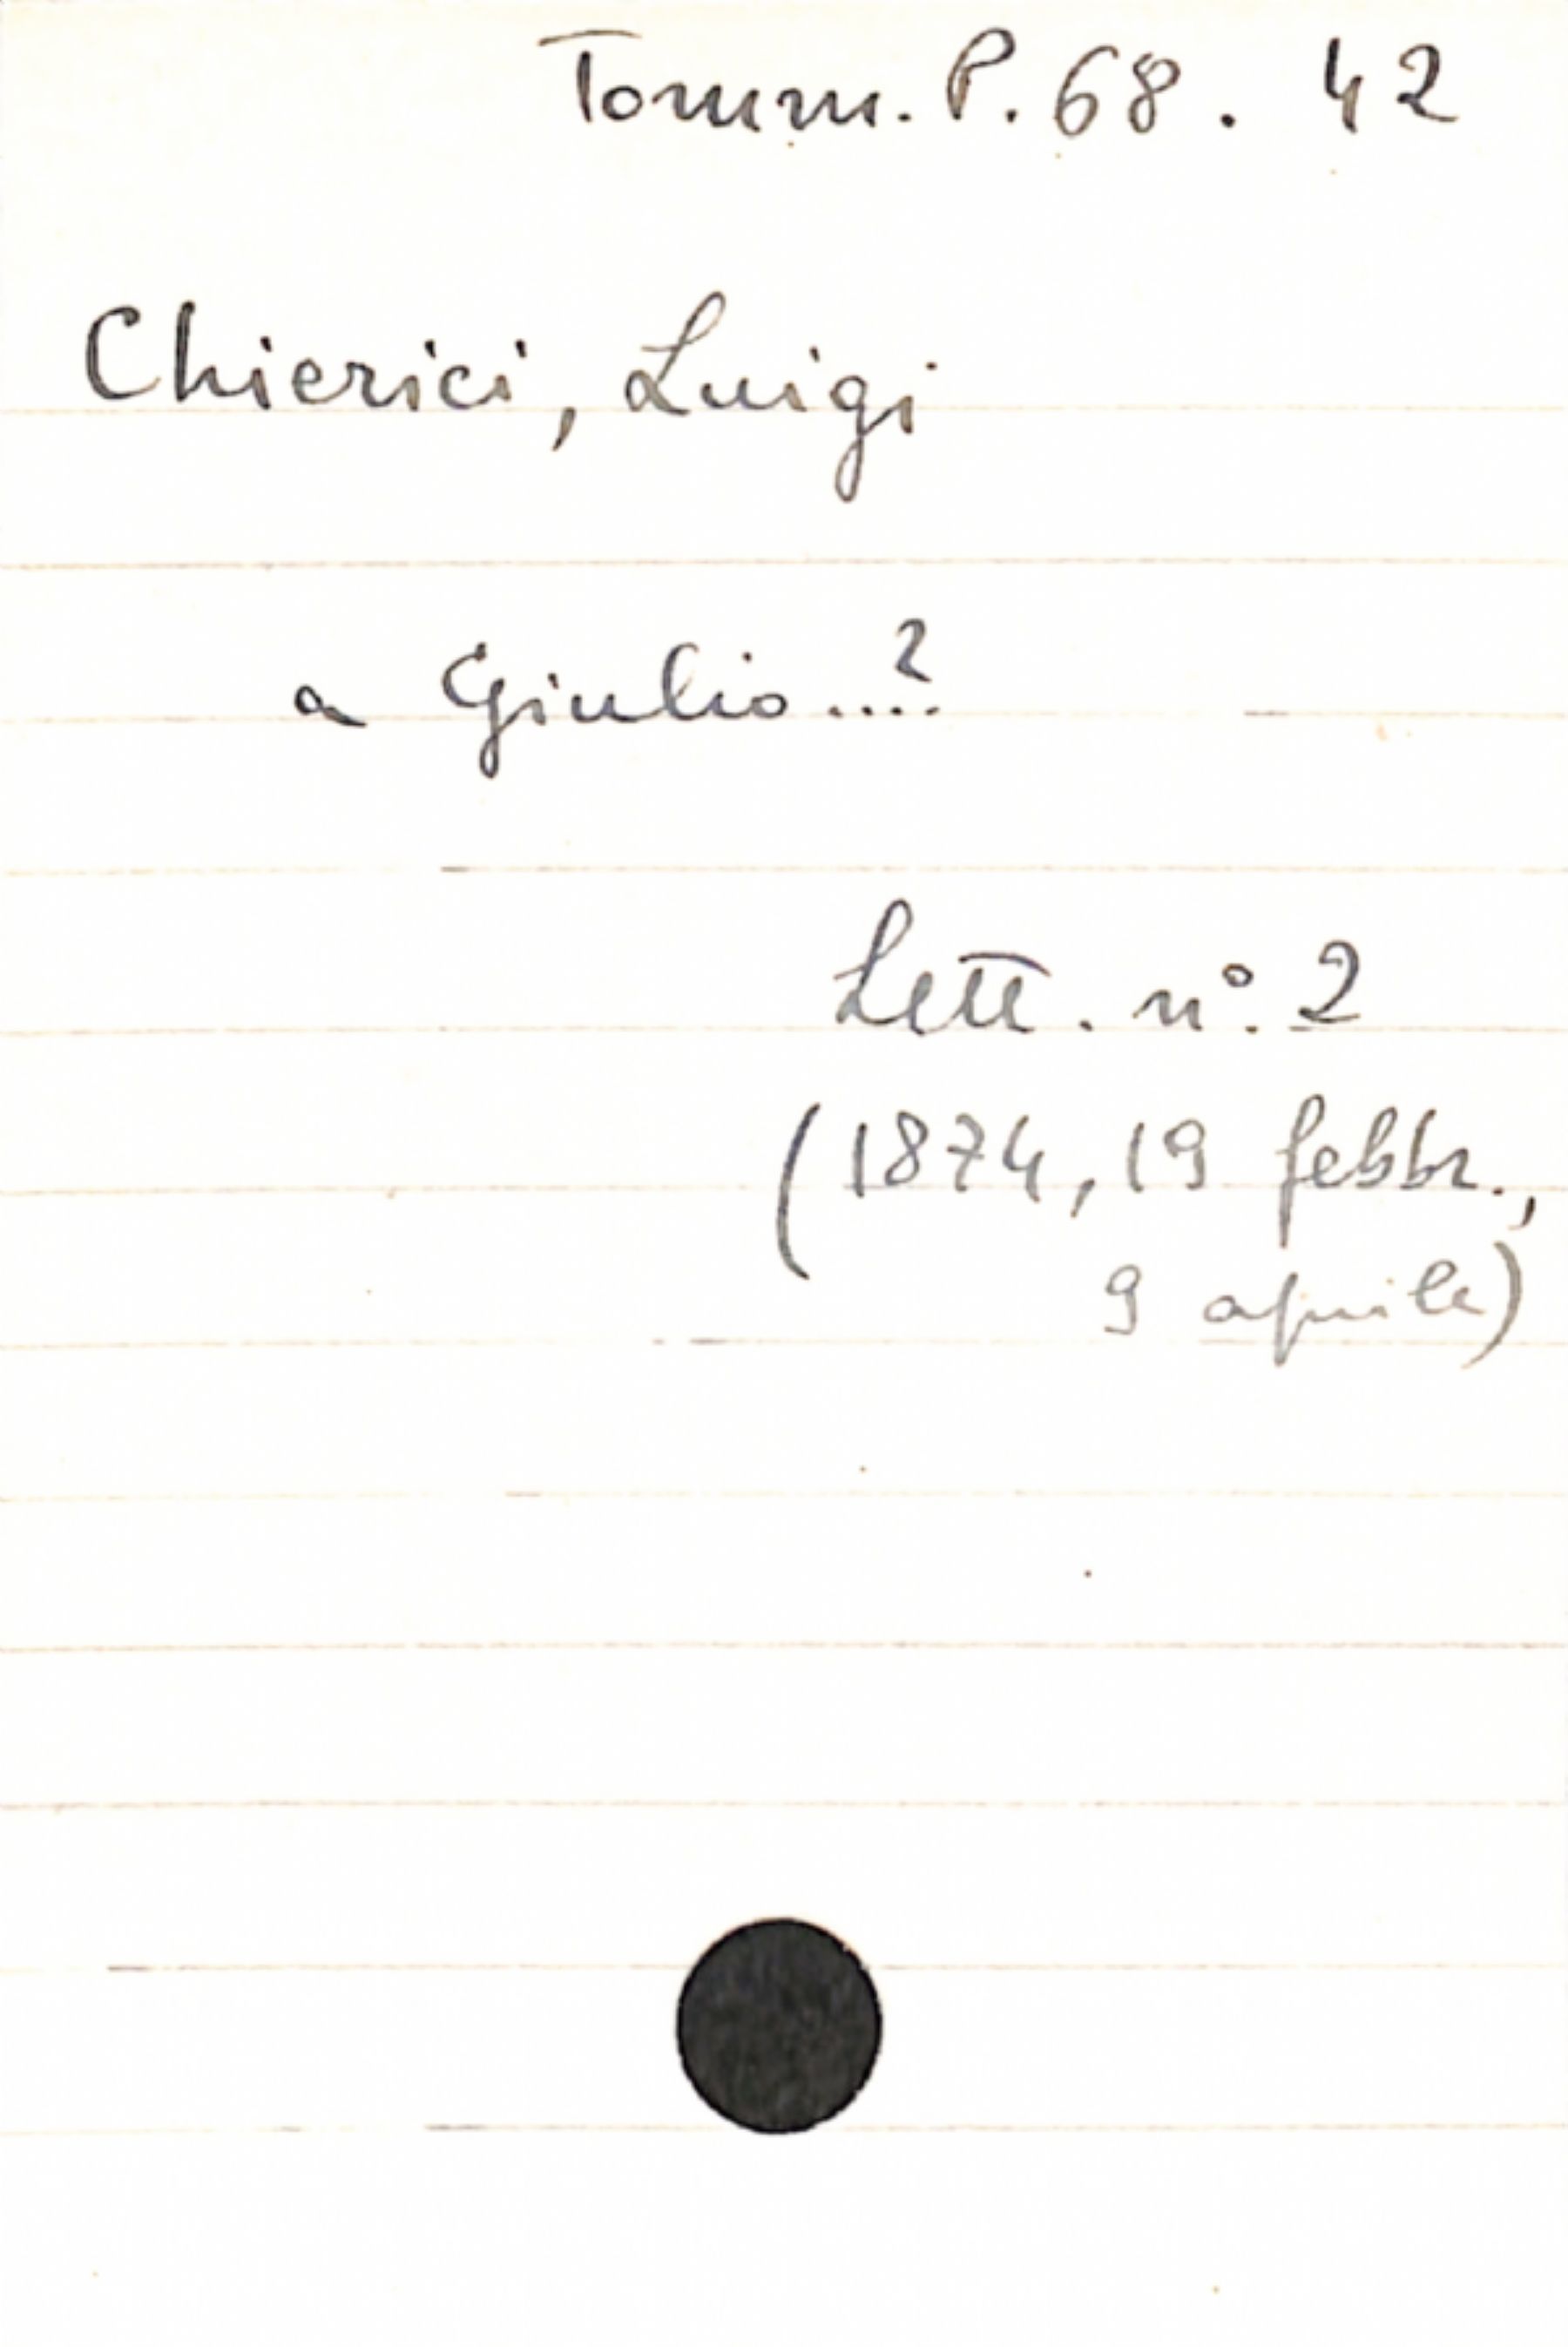 Tomm. P. 68. 42
Chierici, Luigi
a Giulio....?
Lett. nº. 2
(1874, 19 febbr.,
9 aprile)